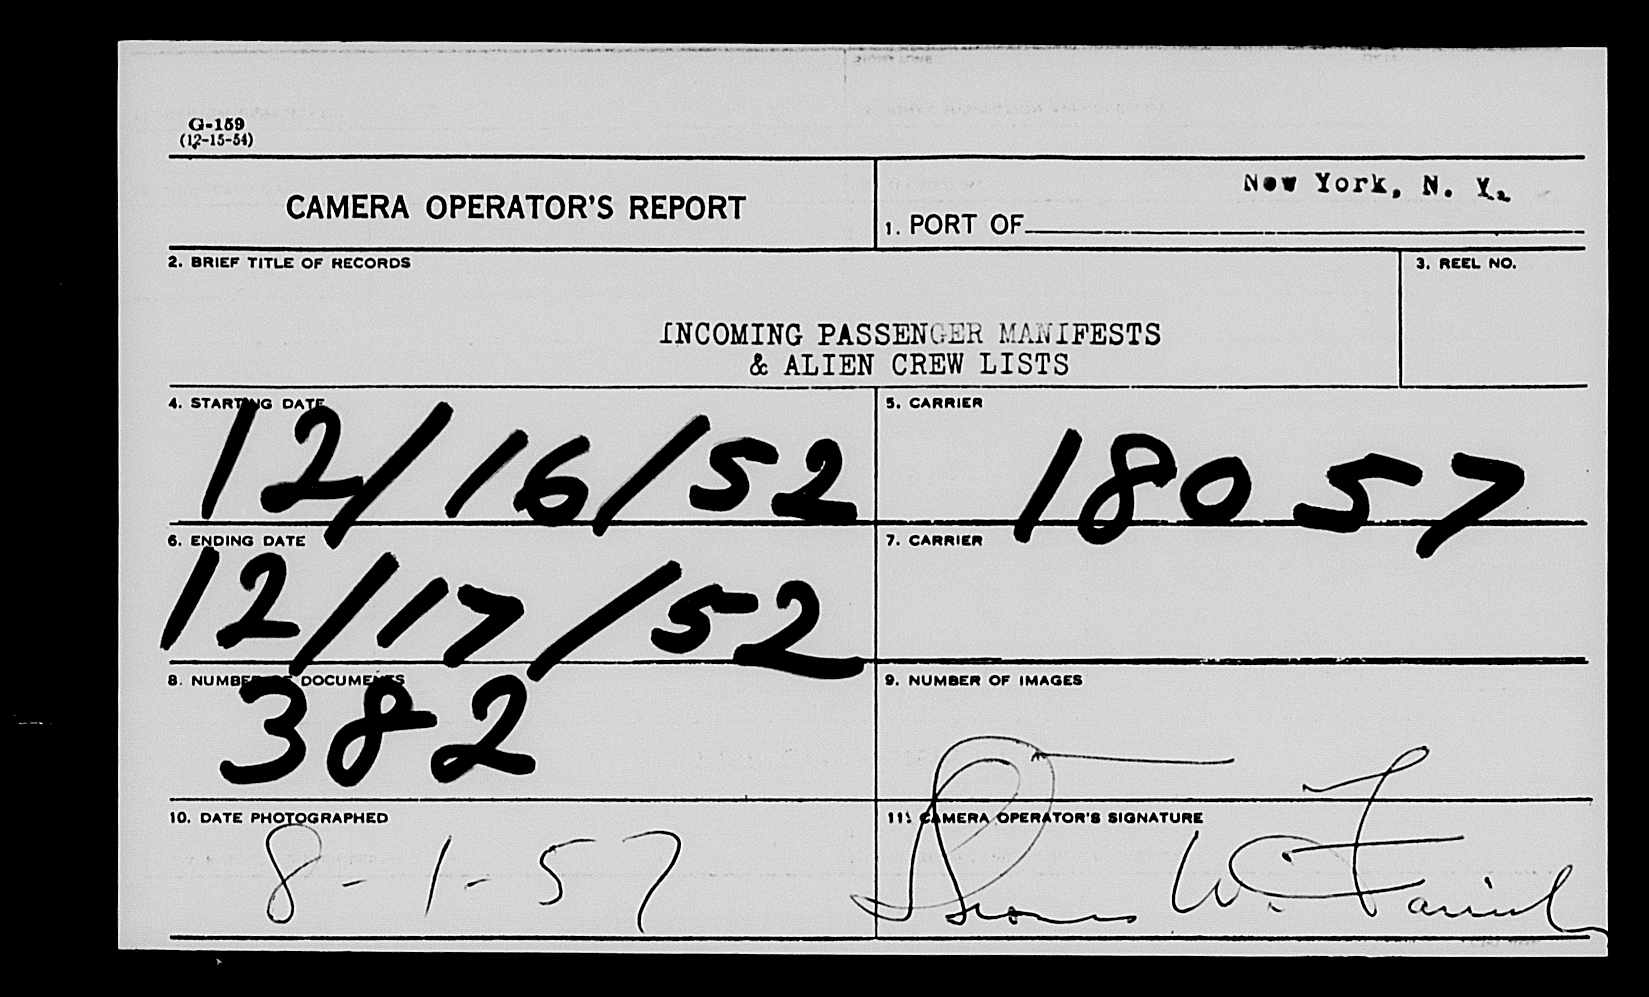 G-159
(12-15-54)
CAMERA OPERATOR'S REPORT
New York, N. Y.
1. PORT OF
2. BRIEF TITLE OF RECORDS
3. REEL NO.
INCOMING PASSENGER MANIFESTS
& ALIEN CREW LISTS
4. STARTING DATE
12/16/52
5. CARRIER
18057
6. ENDING DATE
12/17/52
7. CARRIER
8. NUMBER OF DOCUMENTS
382
9. NUMBER OF IMAGES
10. DATE PHOTOGRAPHED
8-1-57
11. CAMERA OPERATOR'S SIGNATURE
Thomas W.